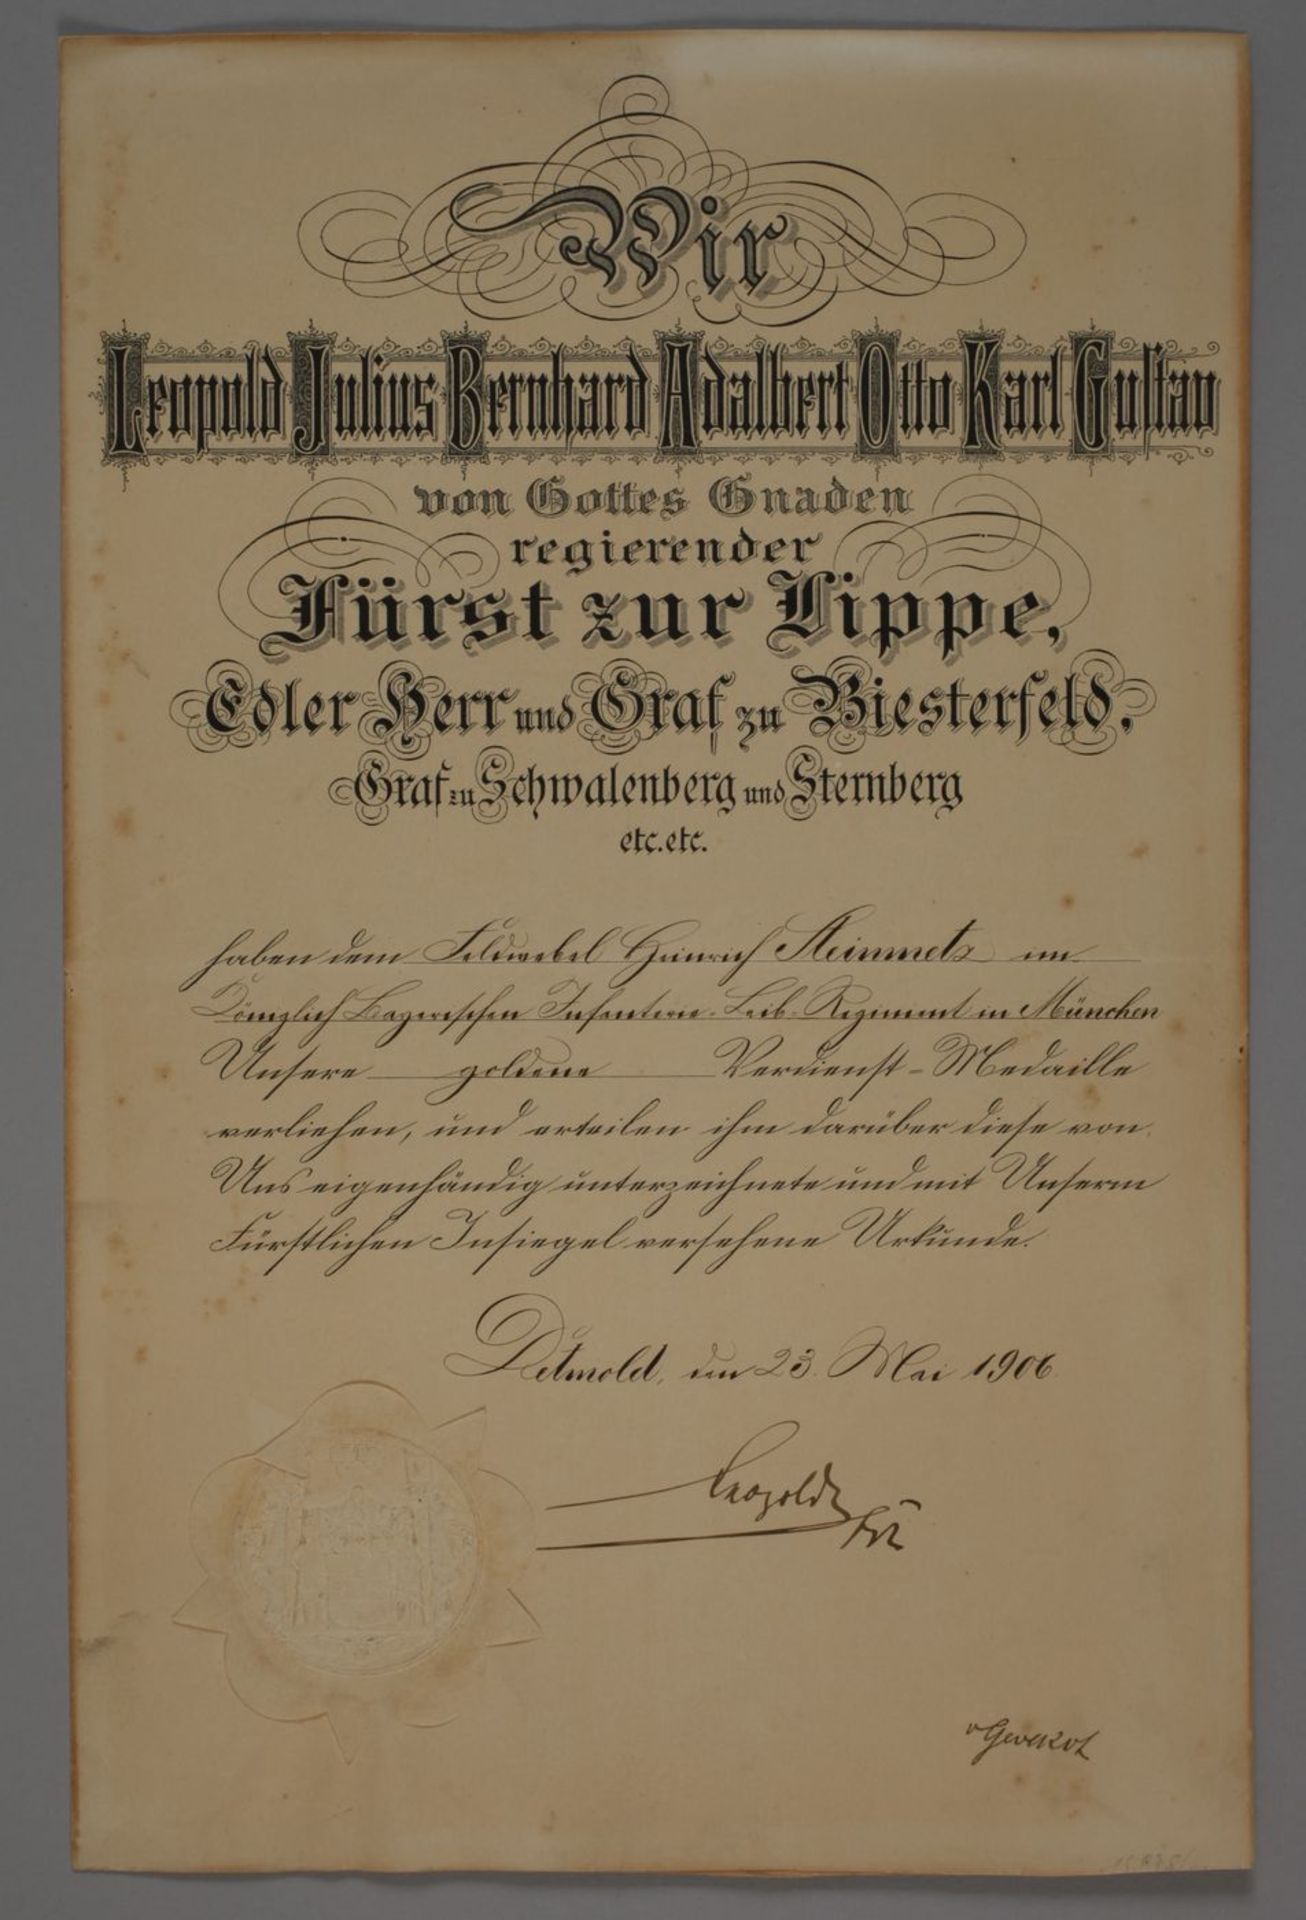 Wir
Leopold Julius Bernhard Adalbert Otto Karl Gustav
von Gottes Gnaden
regierender
Fürst zur Lippe,
Edler Herr und Graf zu Biesterfeld,
Graf zu Schwalenberg und Sternberg
etc. etc.
haben dem Feldwebel Heinrich Steinmetz im
Königlich Bayerischen Infanterie-Leib-Regiment in München
Unsere goldene Verdienst-Medaille
verliehen, und erteilen ihm darüber diese von
Uns eigenhändig unterzeichnete und mit Unserm
Fürstlichen Insiegel versehene Urkunde.
Detmold, den 23. Mai 1906.
Leopold
v Gevekot